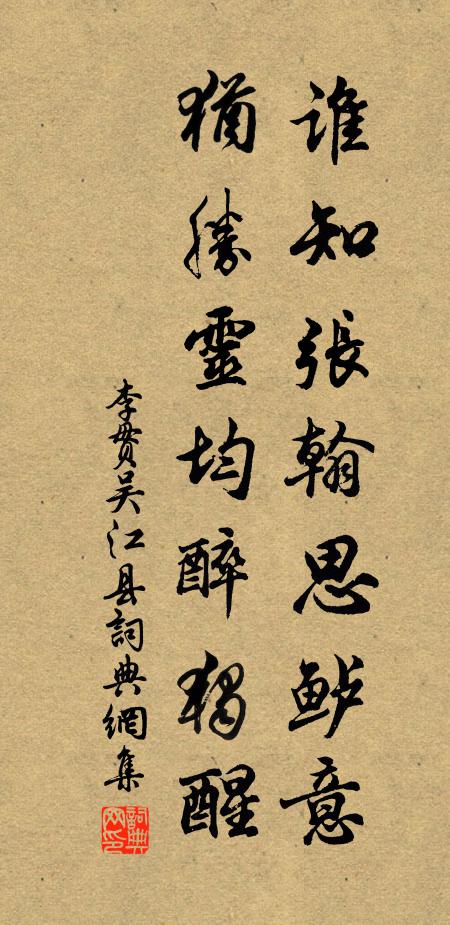 誰知張翰思鲈意
猶勝靈均醉獨醒
李贯吴江县詞典網集
詞典网印